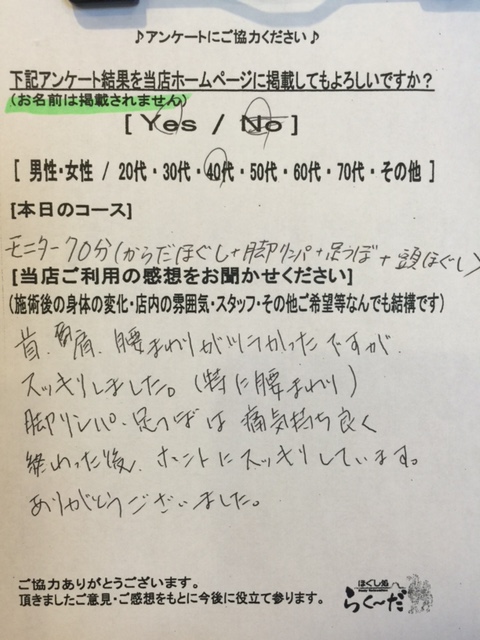 ♪アンケートにご協力ください♪
下記アンケート結果を当店ホームページに掲載してもよろしいですか？
(お名前は掲載されません)
[ Yes / No ]
[ 男性・女性 / 20代・30代・40代・50代・60代・70代・その他 ]
[本日のコース]
モニター70分(からだほぐし+脚リンパ+足つぼ+頭ほぐし)
[当店ご利用の感想をお聞かせください]
(施術後の身体の変化・店内の雰囲気・スタッフ・その他ご希望等なんでも結構です)
首、肩、腰まわりがつらかったですが、
スッキリしました。(特に腰まわり)
脚リンパ・足つぼは痛気持ち良く
終わった後、ホントにスッキリしています。
ありがとうございました。
ご協力ありがとうございます。
頂きましたご意見・ご感想をもとに今後に役立て参ります。
ほぐし処
らく〜だ